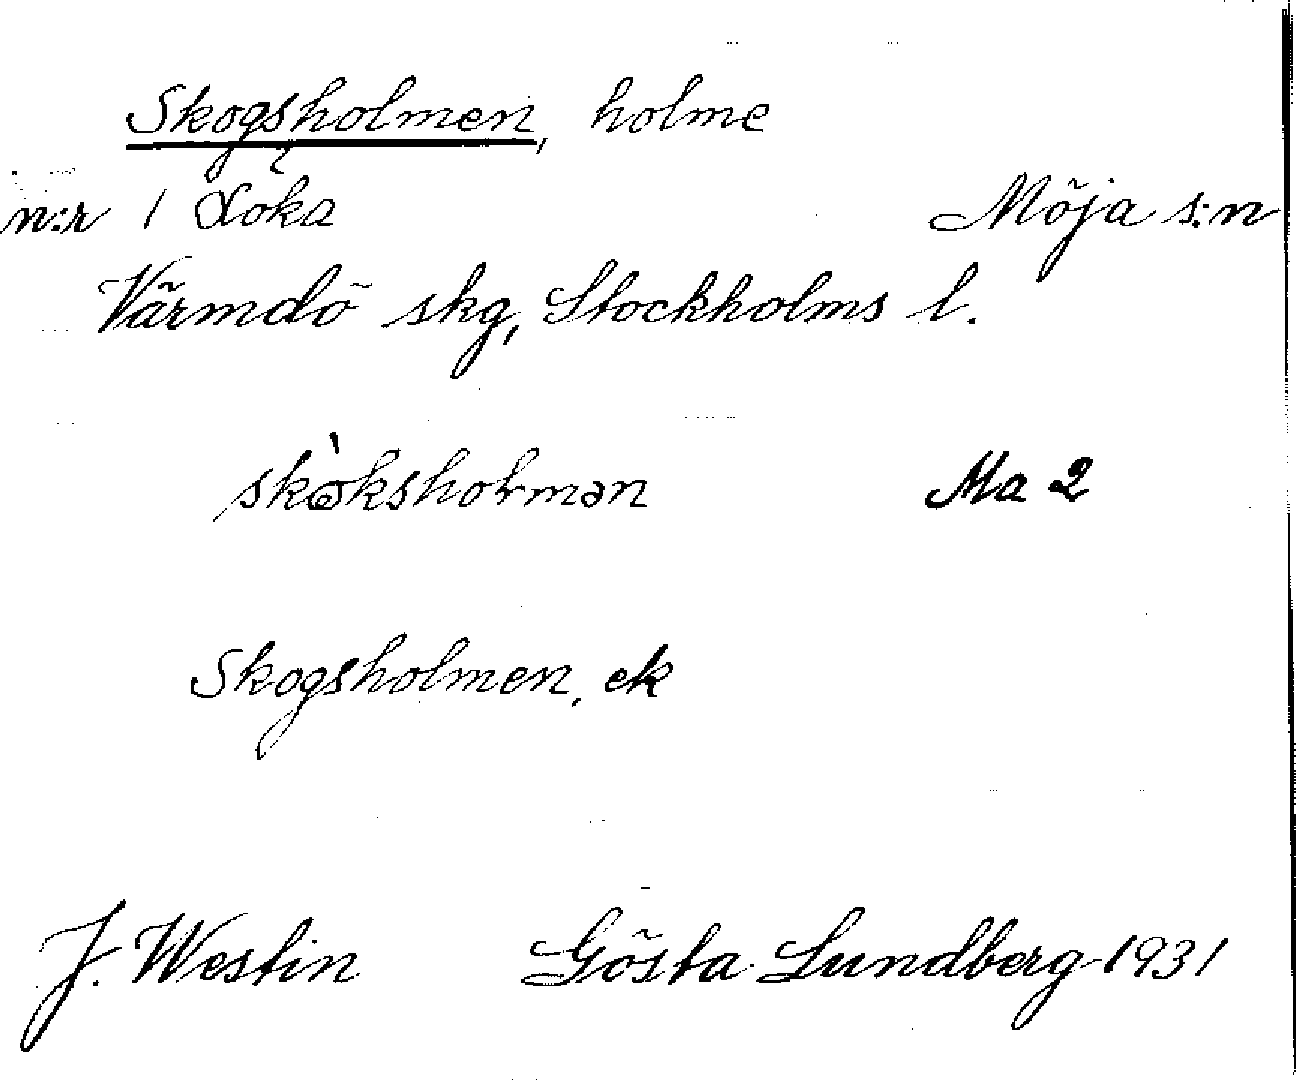 Skogsholmen, holme
n:r 1 Löka Möja s:n
Värmdö skg, Stockholms l.
skòksholmən Ma 2
Skogsholmen, ek
J. Westin Gösta Lundberg 1931